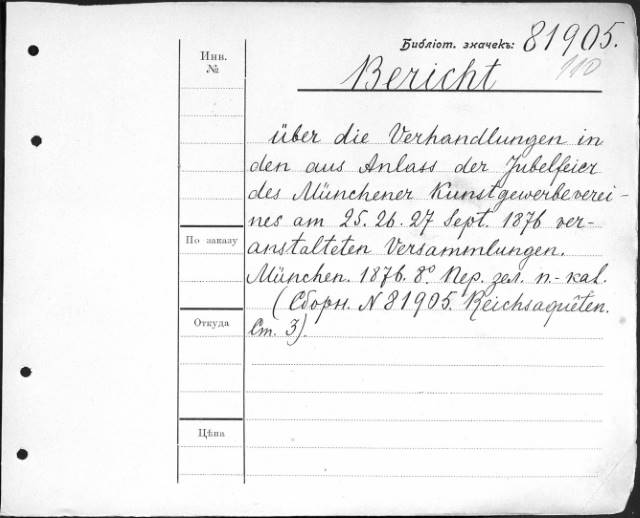 Библіот. значекъ: 81905.
Инв.
№
Bericht
über die Verhandlungen in
den aus Anlass der Jubelfeier
des Münchener Kunstgewerbeverei-
nes am 25. 26. 27 Sept. 1876 ver-
По заказу
anstalteten Versammlungen.
München. 1876. 8º. Пер. зел. п.-кал.
(Сборн. N 81905. Reichsaquêten.
Откуда
Ст. 3).
Цѣна